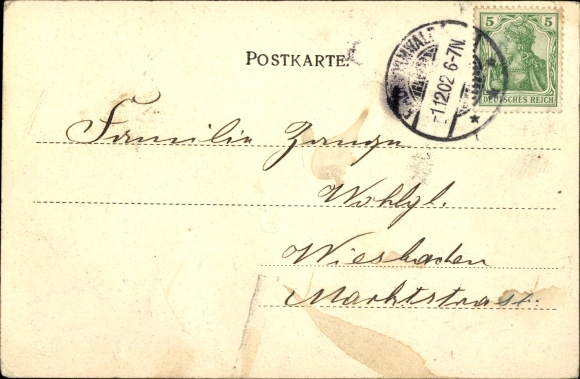 POSTKARTE.
5 5
DEUTSCHES REICH
-1.12.02 6-7N.
Familie
Wohlgb.
Wiesbaden
Marktstrasse